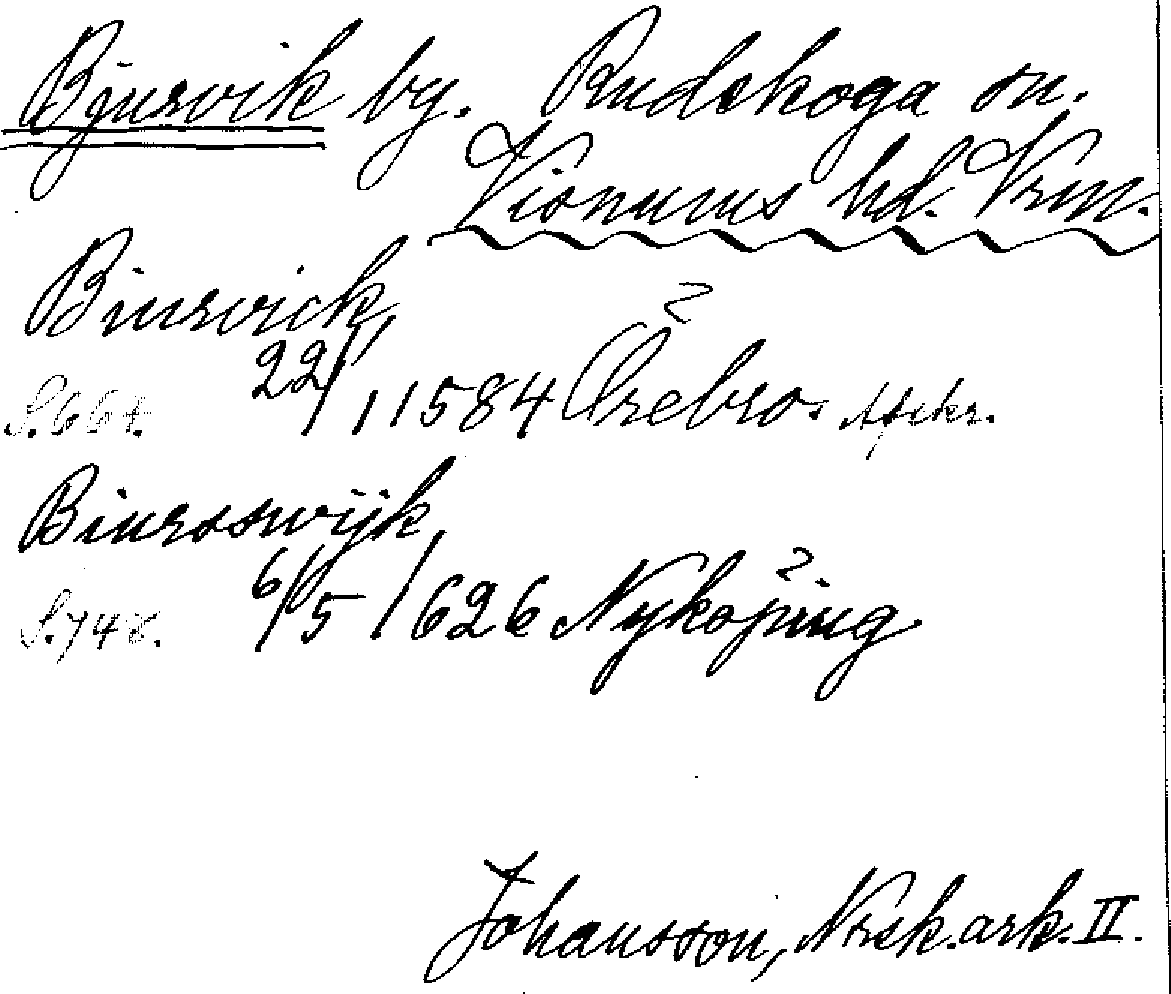 Bjurvik by. Rudskoga sn.
Visnums hd. Vrm.
Biurvick
S. 667. 22/11 1584 Örebro. Afskr.
Biursswijk
S. 748. 6/5 1626 Nyköping
Johansson, Nrsk. ark. II.